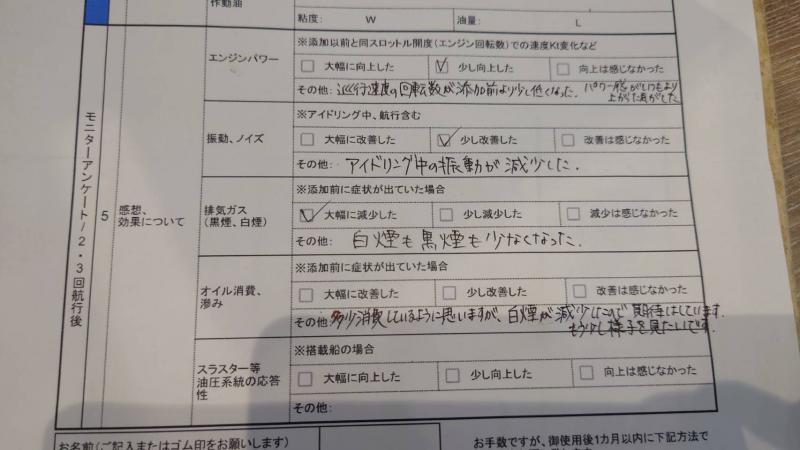 作動油
粘度： W 油量： L
モニターアンケート/2・3回航行後
5
感想、
効果について
エンジンパワー
※添加以前と同スロットル開度(エンジン回転数)での速度Kt変化など
大幅に向上した 少し向上した 向上は感じなかった
その他: 巡行速度の回転数が添加前より少し低くなった。パワー感がいつもより
上がった気がした
振動、ノイズ
※アイドリング中、航行含む
大幅に改善した 少し改善した 改善は感じなかった
その他: アイドリング中の振動が減少した.
排気ガス
(黒煙、白煙)
※添加前に症状が出ていた場合
大幅に減少した 少し減少した 減少は感じなかった
その他: 白煙も黒煙も少なくなった.
オイル消費、
滲み
※添加前に症状が出ていた場合
大幅に改善した 少し改善した 改善は感じなかった
その他: 多少消費しているように思いますが、白煙が減少したので期待はしています.
もう少し様子を見たいです.
スラスター等
油圧系統の応答
性
※搭載船の場合
大幅に向上した 少し向上した 向上は感じなかった
その他:
お名前(ご記入またはゴム印をお願いします)
お手数ですが、御使用後1カ月以内に下記方法で